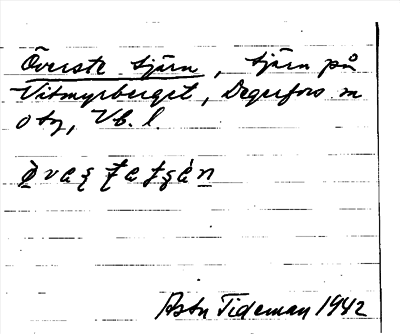 Överste tjärn, tjärn på
Vitmyrberget, Degerfors sn
o tg, Vb. l.
Astn Tideman 1942